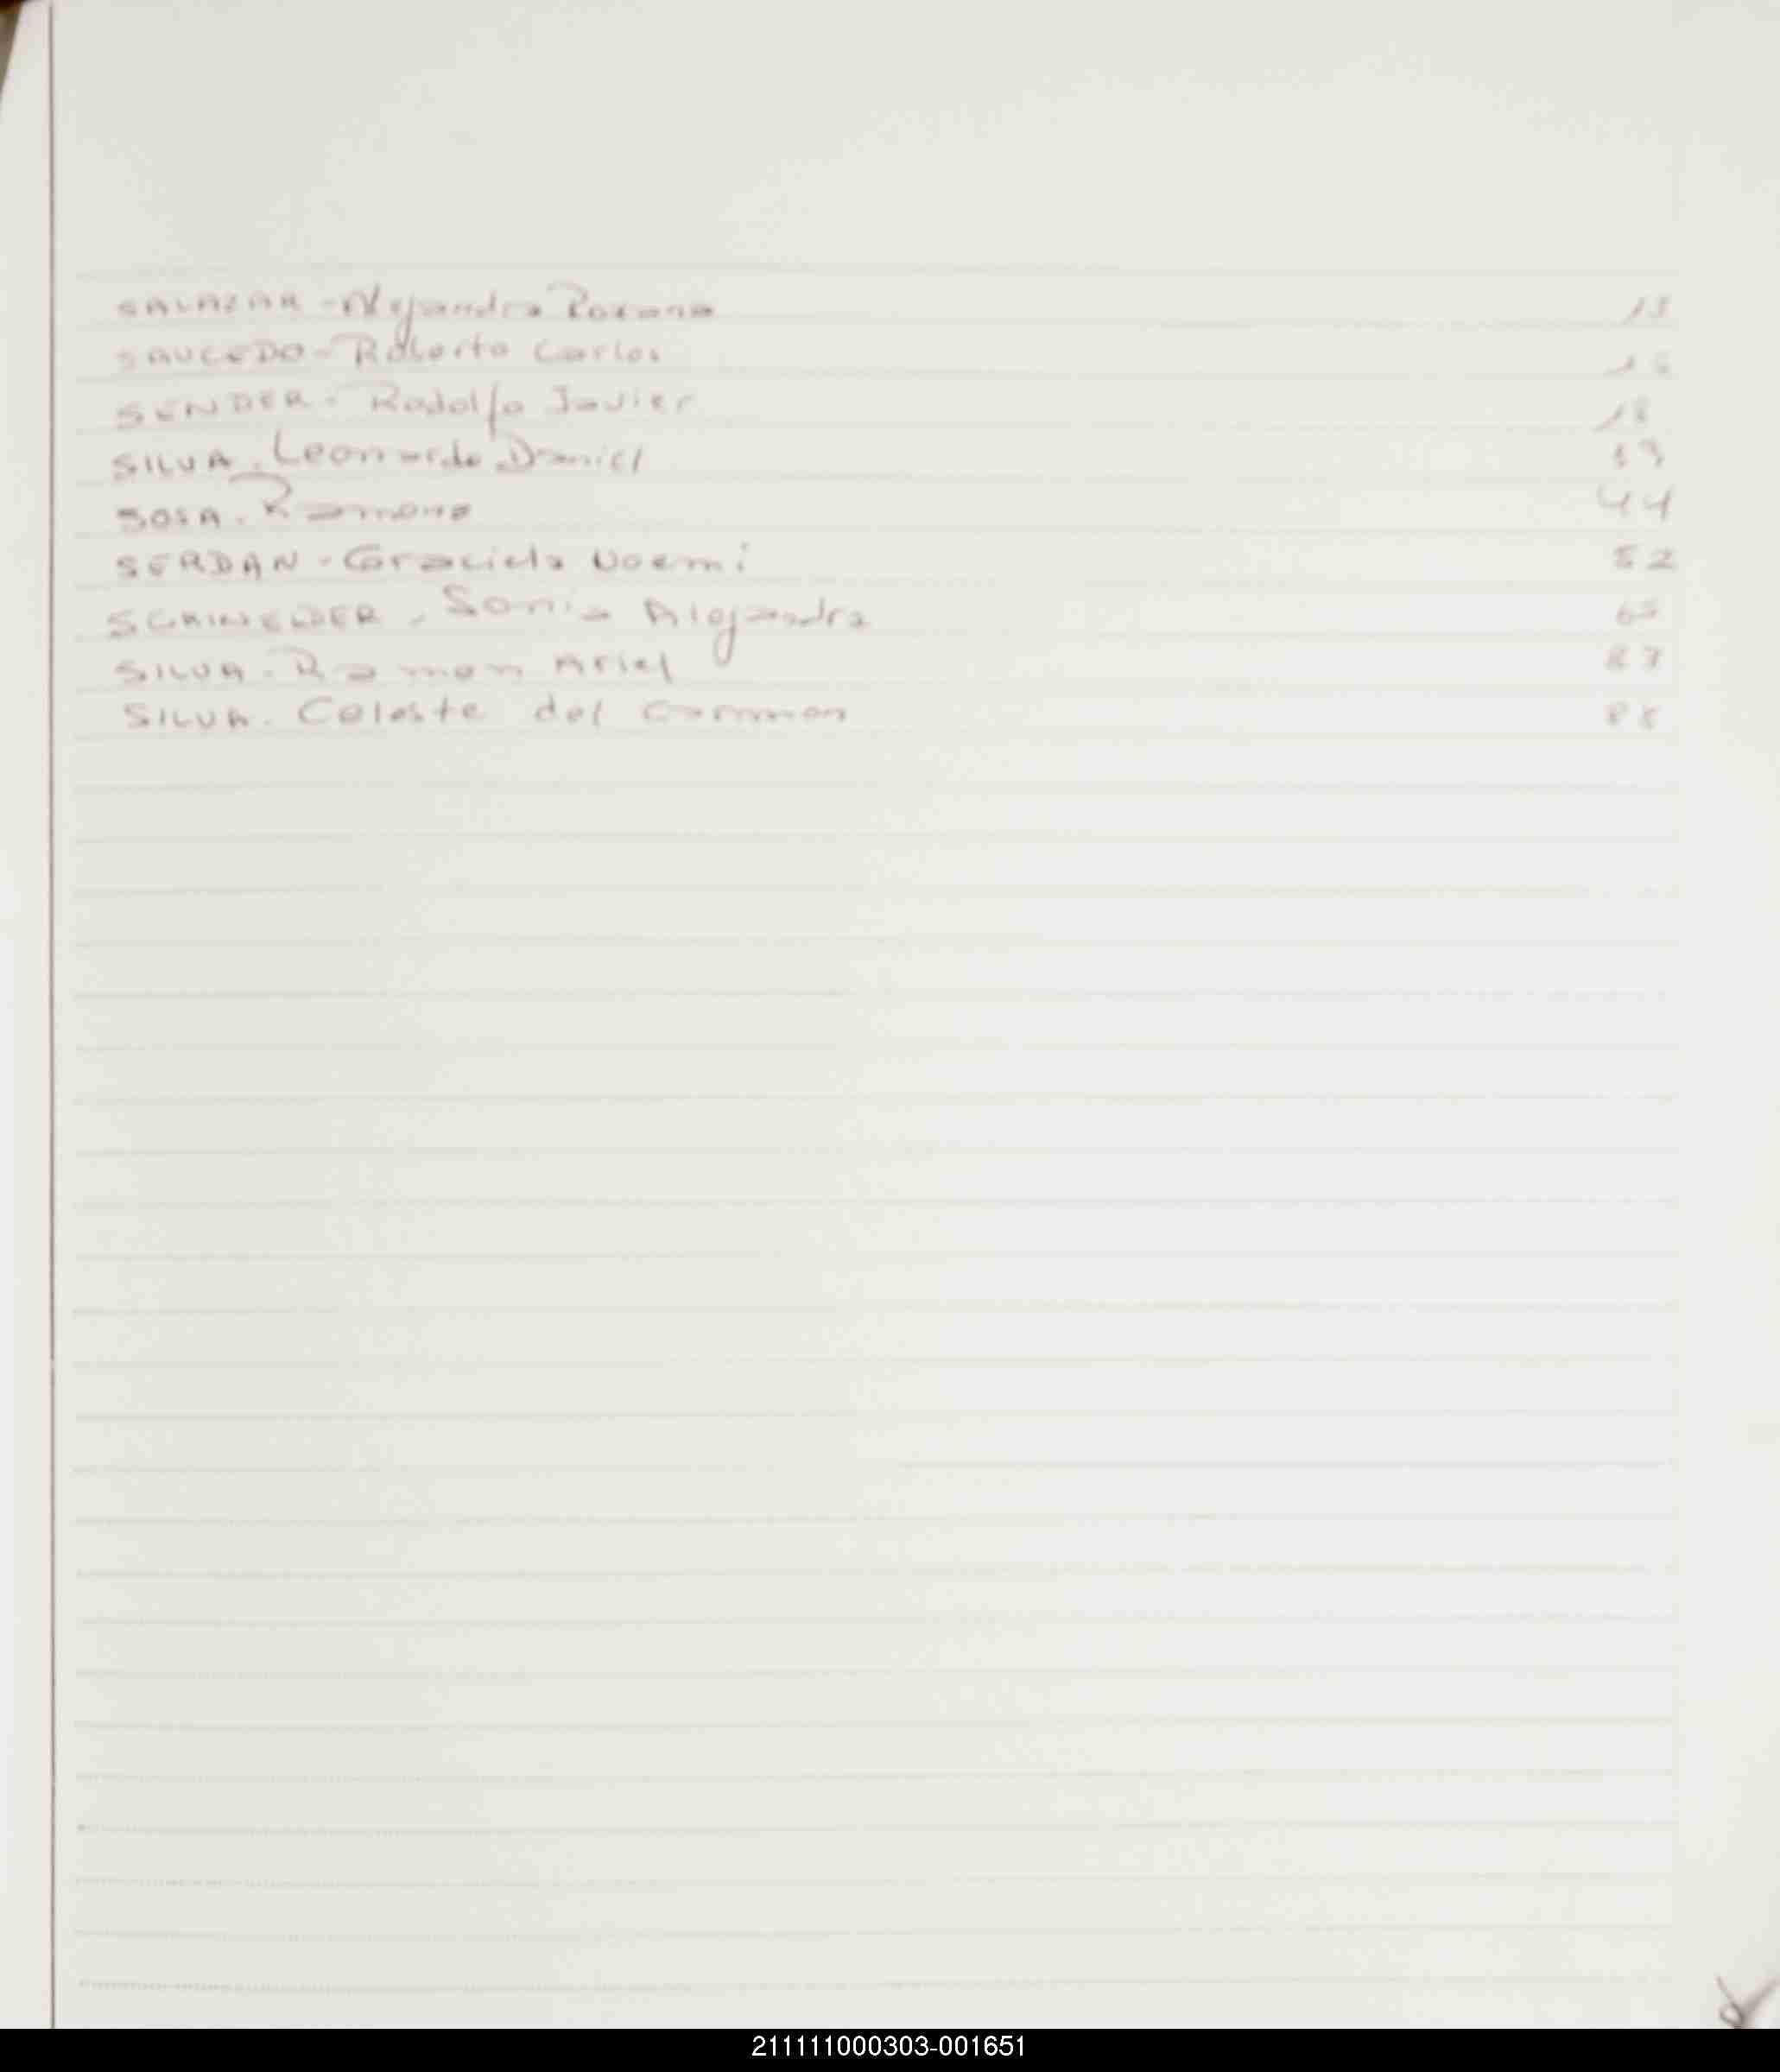 SALAZAR - Alejandra Roxana 15
SAUCEDO - Roberto Carlos 16
SENDER - Rodolfo Javier 18
SILVA. Leonardo Daniel
SOSA. Ramona 44
SERDAN - Graciela Noemi 52
Sonia Alejandra
SILVA. Ramon Ariel 87
SILVA. Celeste del Carmen 88
211111000303-001651